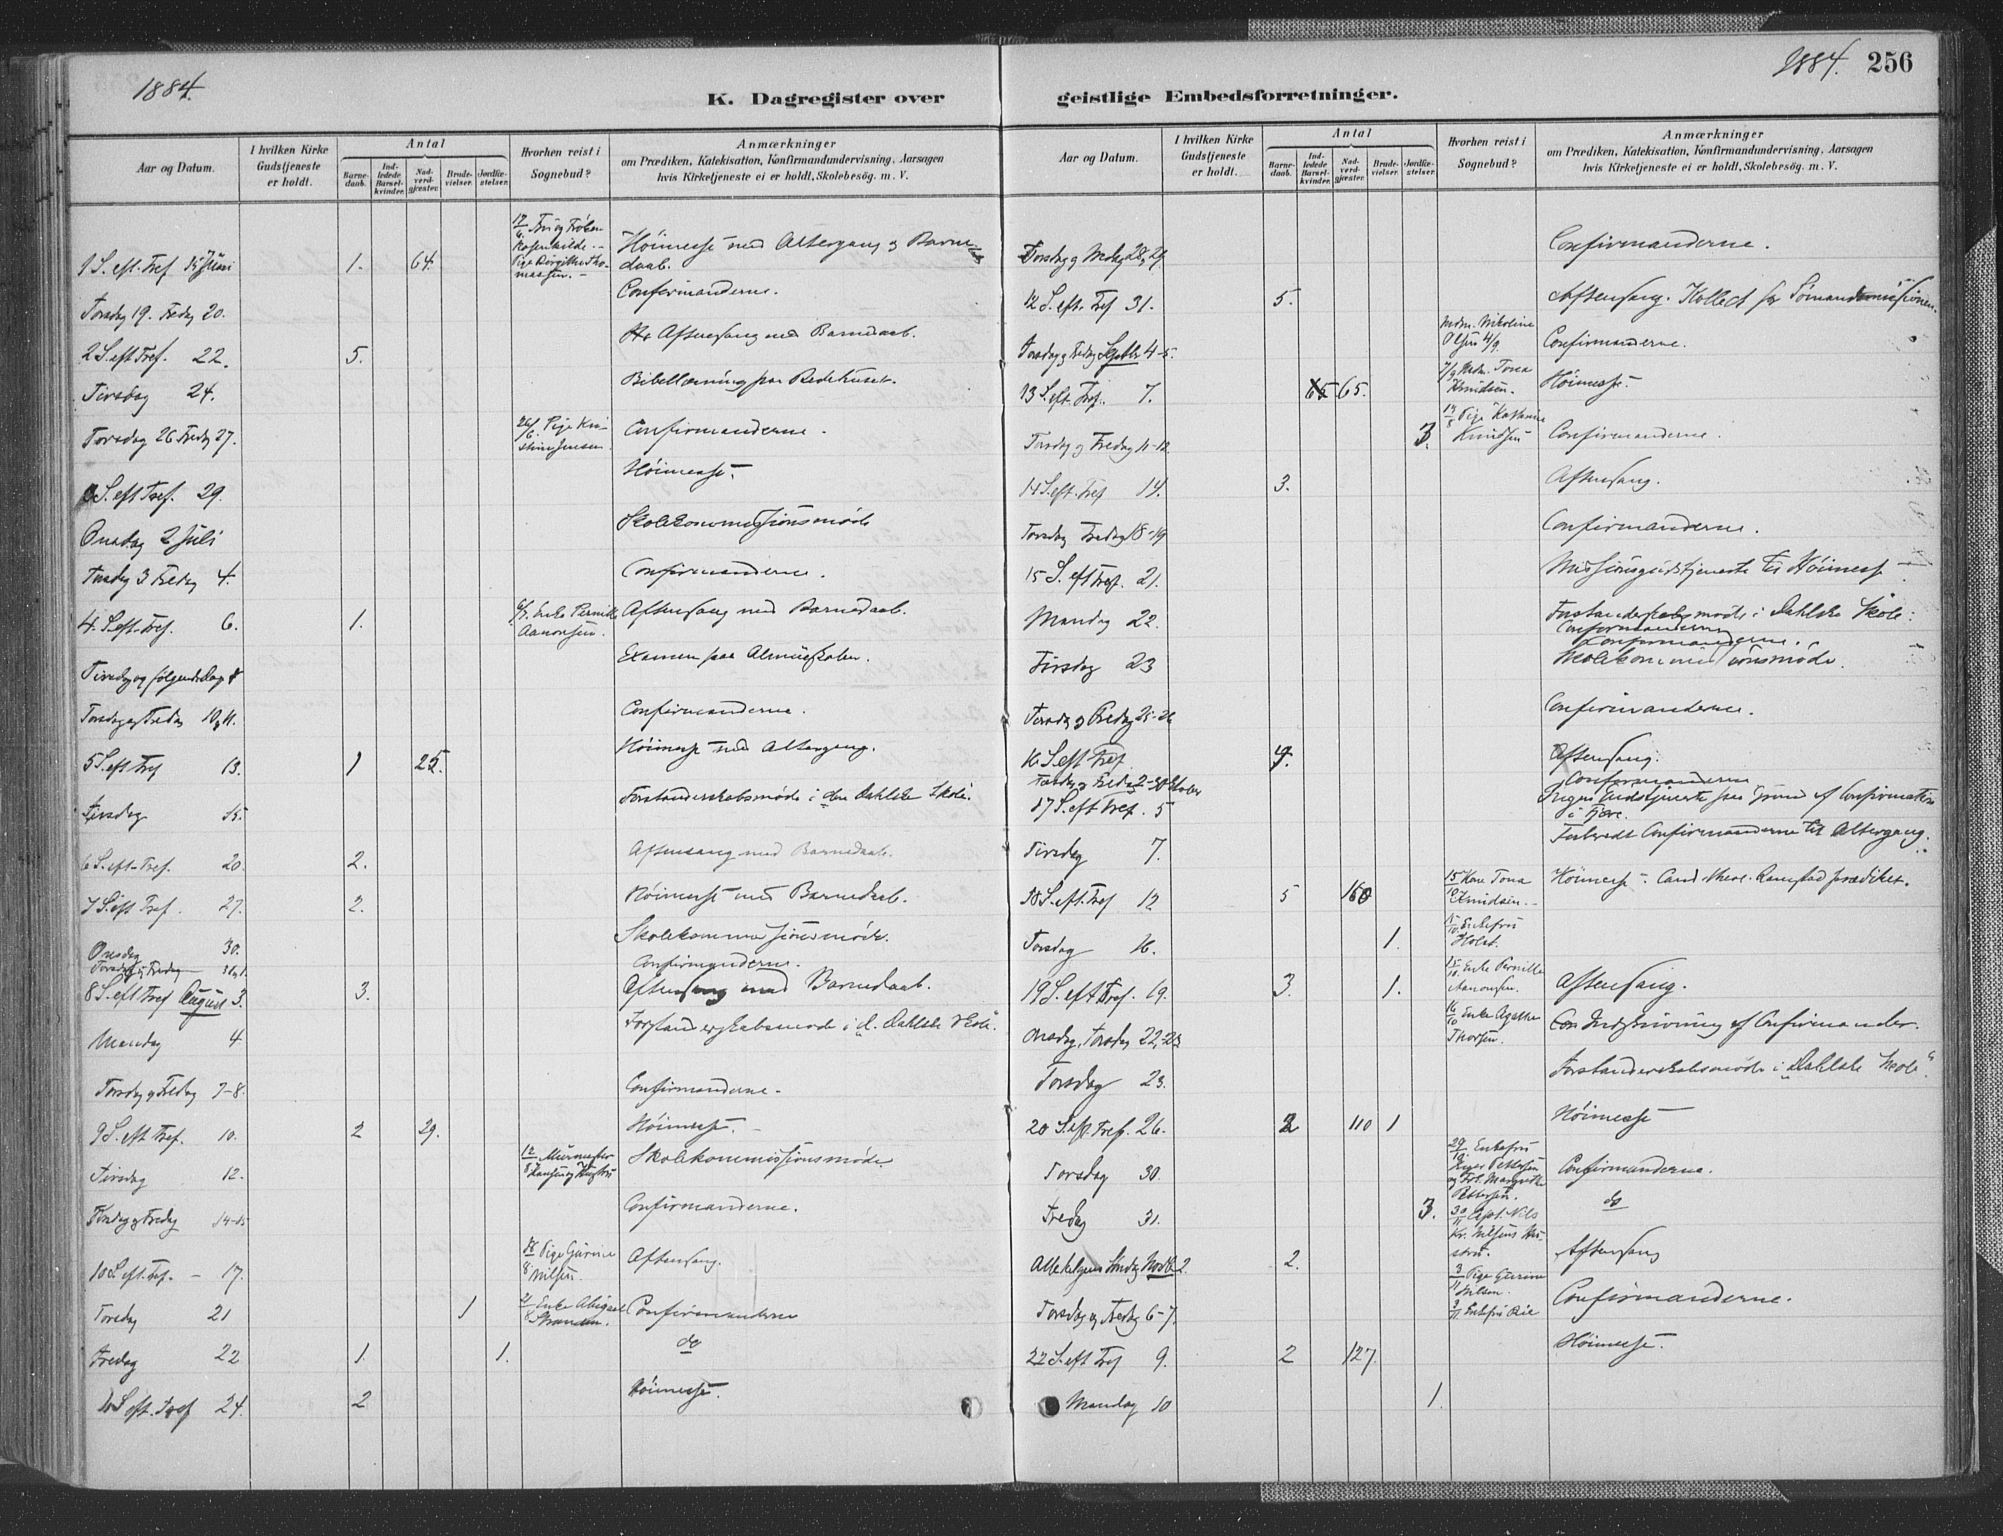 1884.
K. Dagregister over
Aar og Datum.
I hvilken Kirke Gudstjeneste er holdt.
Antal
Barne-daab.
Ind-ledede Barsel-kvinder.
Nad-verd-gjæster.
Brude-vielser.
Jordfæ-stelser.
Hvorhen reist i Sognebud?
Anmærkninger
om Prædiken, Katekisation, Konfirmandundervisning, Aarsagen
hvis Kirketjeneste ei er holdt, Skolebesøg. m. V.
1 S. eft. Tref Juni 1. 64. Høimesse med Altergang og Barnedaab.
Torsdag 19. Fredag 20. Confirmanderne.
2 S. eft Tref. 22. 5. Aftensang med Barnedaab.
Tirsdag 24. Bibellæsning paa Bedehuset.
Torsdag 26 Fredag 27. 26/6. Pige Kristine Jensen. Confirmanderne.
S. eft Tref. 29. Høimesse.
Onsdag 2 Juli Skolekommissionsmøde
Torsdag 3 Fredag 4. Confirmanderne.
4. S. eft. Tref. 6. 1. Enke Pernille Aanonsen. Aftensang med Barnedaab.
Tirsdag og følgende Dag 8 Examen paa Almueskolen.
Torsdag og Fredag 10 og 11. Confirmanderne.
5 S. eft Tref 13. 1 25. Høimesse med Altergang.
Tirsdag 15. Forstanderskabsmøde i den Dahlske Skole.
6 S. eft. Tref. 20. 2. Aftensang med Barnedaab.
7 S. eft Tref. 27. 2. Høimesse med Barnedaab.
Onsdag 30. Skolekommissionsmøde.
Torsdag og Fredag 31 og 1. Confirmanderne.
8 S. eft Tref August 3. 3. Aftensang med Barnedaab.
Mandag 4 Forstanderskabsmøde i d. Dahlske Skole.
Torsdag og Fredag 7-8. Confirmanderne.
9 S. eft Tref. 10. 2 29. Høimesse.
Tirsdag 12. 12/8 Murmester Skolekommissionsmøde
Torsdag og Fredag 14-15 Confirmanderne.
10 S. eft. Tref. - 17. Pige Gurine Nilsen. Aftensang.
Torsdag 21 1 Enke Abigael Confirmanderne
Fredag 22 1. 1. do
S. eft. Tref 24. 2 Høimesse.
1884. 256
geistlige Embedsforretninger.
Aar og Datum.
I hvilken Kirke Gudstjeneste er holdt.
Antal
Barne-daab.
Ind-ledede Barsel-kvinder.
Nad-verd-gjæster.
Brude-vielser.
Jordfæ-stelser.
Hvorhen reist i Sognebud?
Anmærkninger
om Prædiken, Katekisation, Konfirmandundervisning, Aarsagen
hvis Kirketjeneste ei er holdt, Skolebesøg. m. V.
Torsdag og 28, 29 Confirmanderne.
12 S. eft. Tref 31. 5. Aftensang. Kollect for Sømandsmissionen.
Torsdag og Fredag Septbr 4-5. Mdm. Nikoline Olsen 4/9. Confirmanderne.
13 S. eft. Tref. 7. 65. 7/9 Mdm. Tona Knudsen. Høimesse.
Torsdag og Fredag 11-12 3. Pige Knudsen Confirmanderne.
14 S. eft. Tref 14. 3. Aftensang.
Torsdag Fredag 18-19 Confirmanderne.
15 S. eft Tref. 21. Missionsgudstjeneste til Høimesse
Mandag 22. Forstanderskabsmøde i Dahlske Skole.
Confirmanderne
Confirmanderne.
Tirsdag 23 Skolekommissionsmøde.
Torsdag og Fredag 25-26 Confirmanderne.
16 S. eft Tref 4. Aftensang.
Torsdag og Fredag 2-3 October Confirmanderne
17 S. eft Tref. 5 Ingen Gudstjeneste paa Grund af Confirmation i Fjære.
Tirsdag 7. Forberedt Confirmanderne til Altergang.
18 S. eft. Tref 12 5 160 Kone Tona Knudsen. Høimesse. Cand. theol. prædiket.
Torsdag 16. 1. Enkefru Holst.
19 S. eft Tref. 19. 3. 1. Enke Pernille Aanonsen. Aftensang.
Onsdag, Torsdag 22, 23 16/10 Enke Agathe Thorsen. Indskrivning af Confirmander.
Torsdag 23. Forstanderskabsmøde i Dahlske Skole
20 S. eft. Tref. 26. 2 110 1 Høimesse
Torsdag 30. 29/10. Enkefru Pettersen og Frk. Margrethe Pettersen. Confirmanderne.
Fredag 31. 3. Capt. Nils Kr. Nilsens Hustru. do
Allehelgens Søndag Novbr 2. 2. Aftensang
Torsdag og Fredag 6-7. 3/11 Pige Gurine Nilsen. 3/11 Enkefru Confirmanderne.
22 S. eft Tref 9. 2 127. Høimesse.
Mandag 10 1.